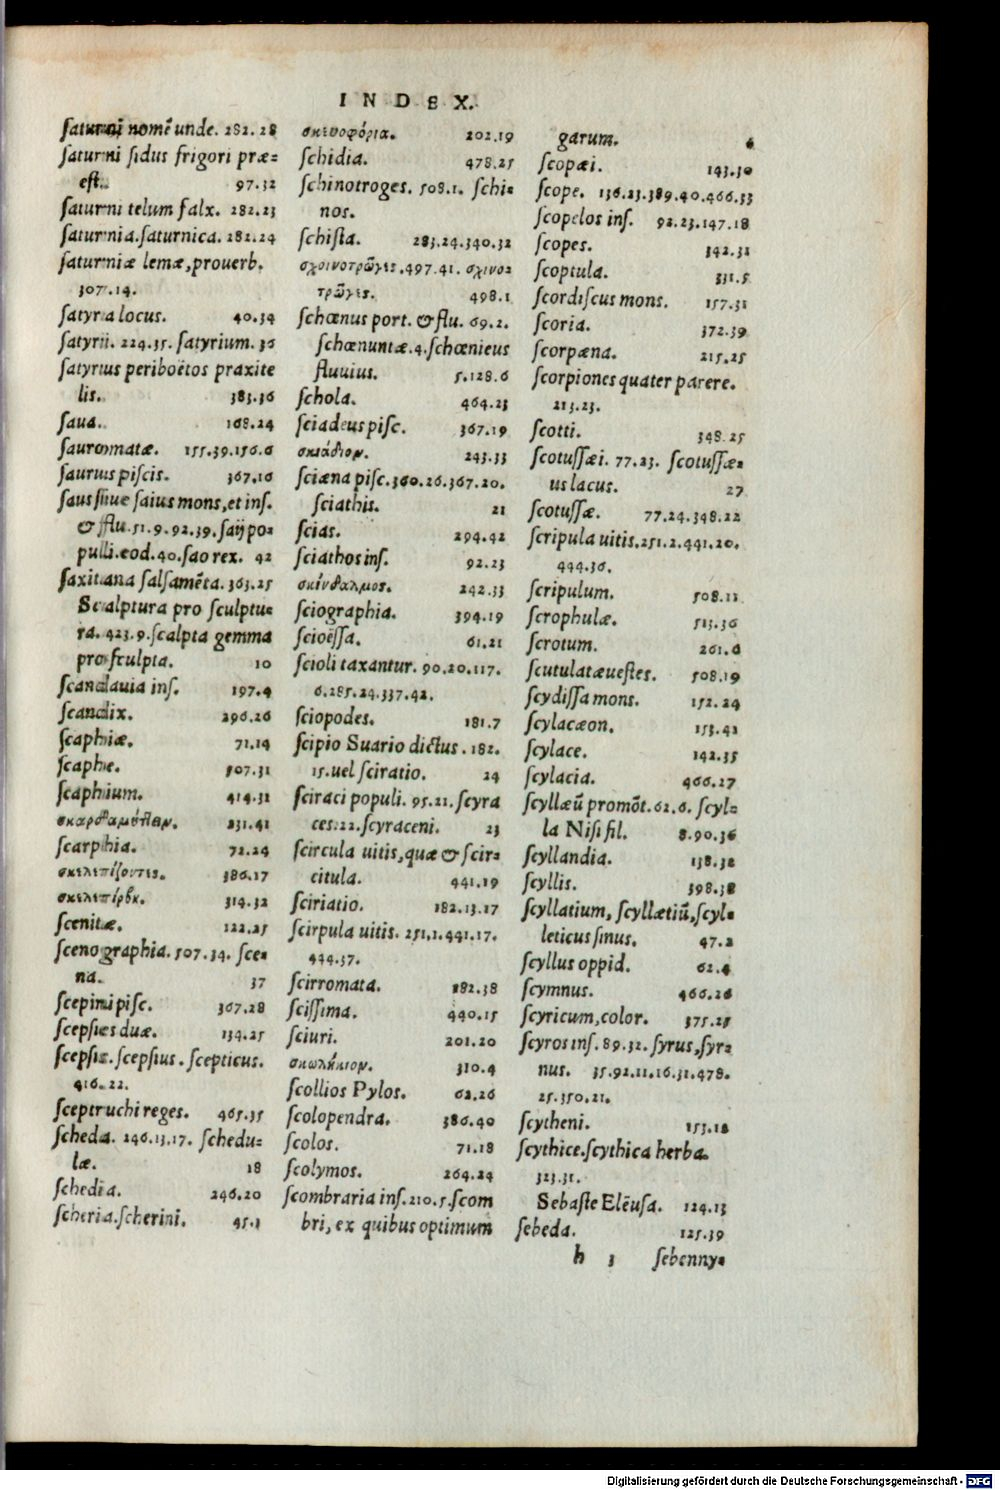 INDEX.
ſaturni nomē unde. 282. 28
ſaturni ſidus frigori præ=
eſt. 97.32
ſaturni telum falx. 282.23
ſaturnia.ſaturnica. 282.24
ſaturniæ lemæ,prouerb.
307.14.
ſatyra locus. 40.34
ſatyrii. 224.35. ſatyrium. 36
ſatyrus periboëtos praxite
lis. 383.36
ſaua. 168.24
ſauromatæ. 155.39.156.6
ſaurus piſcis. 367.16
ſaus ſiue ſaius mons,et inſ.
& flu.51.9.92.39.ſaij po=
puli.eod.40.ſao rex. 42
ſaxitana ſalſamēta.363.25
Scalptura pro ſculptu=
ra. 423.9.ſcalpta gemma
pro ſculpta. 10
ſcandauia inſ. 197.4
ſcandix. 296.26
ſcaphiæ. 71.14
ſcaphe. 507.31
ſcaphium. 414.31
231.41
ſcarphia. 72.24
σκελεπίζοντες. 386.17
314.32
ſcenitæ. 122.25
ſcenographia.507.34. ſce=
na. 37
ſcepini piſc. 367.28
ſcepſies duæ. 134.25
ſcepſis.ſcepſius.ſcepticus.
416.22.
ſceptruchi reges. 465.35
ſcheda. 246.13.17. ſchedu=
læ. 18
ſchedia. 246.20
ſcheria.ſcherini. 45.1
σκευοφόρια. 202.19
ſchidia. 478.25
ſchinotroges. 508.1. ſchi=
nos.
ſchiſta. 283.24.340.32
σχοινοτρῶγες.497.41. σχινο=
τρῶγες. 498.1
ſchœnus port. & flu. 69.2.
ſchœnuntæ.4.ſchœnieus
fluuius. 5.128.6
ſchola. 464.23
ſciadeus piſc. 367.19
σκιάδιον. 243.33
ſciæna piſc.360.26.367.20.
ſciathis. 21
ſcias. 294.42
ſciathos inſ. 92.23
σκίνδαλμος. 242.33
ſciographia. 394.19
ſcioëſſa. 61.21
ſcioli taxantur. 90.20.117.
6.285.24.337.42.
ſciopodes. 181.7
ſcipio Suario dictus . 182.
15.uel ſciratio. 24
ſciraci populi. 95.21.ſcyra
ces.22.ſcyraceni. 23
ſcircula uitis,quæ & ſcir=
citula. 441.19
ſciriatio. 182.13.17
ſcirpula uitis. 251.1.441.17.
444.37.
ſcirromata. 182.38
ſciſſima. 440.15
ſciuri. 201.20
σκωλήκιον. 310.4
ſcollios Pylos. 62.26
ſcolopendra. 386.40
ſcolos. 71.18
ſcolymos. 264.24
ſcombraria inſ.210.5.ſcom
bri, ex quibus optimum
garum. 6
ſcopæi. 143.30
ſcope. 136.23.389.40.466.33
ſcopelos inſ. 92.23.147.18
ſcopes. 342.31
ſcoptula. 331.5
ſcordiſcus mons. 157.31
ſcoria. 372.39
ſcorpæna. 215.25
ſcorpiones quater parere.
213.23.
ſcotti. 348.25
ſcotuſſæi. 77.23. ſcotuſſæ=
us lacus. 27
ſcotuſſæ. 77.24.348.22
ſcripula uitis.251.2.441.20.
444.36.
ſcripulum. 508.11
ſcrophulæ. 513.36
ſcrotum. 261.6
ſcutulatæ ueſtes. 508.19
ſcydiſſa mons. 152.24
ſcylacæon. 153.41
ſcylace. 142.35
ſcylacia. 466.27
ſcyllæū promōt.62.6. ſcyl=
la Niſi fil. 8.90.36
ſcyllandia. 138.32
ſcyllis. 398.38
ſcyllatium, ſcyllætiū,ſcyl=
leticus ſinus. 47.2
ſcyllus oppid. 62.4
ſcymnus. 466.26
ſcyricum,color. 375.25
ſcyros inſ. 89.32. ſyrus,ſyr=
nus. 35.92.11.16.31.478.
25.350.21.
ſcytheni. 153.18
ſcythice.ſcythica herba.
323.31.
Sebaſte Elëuſa. 124.13
ſebeda. 125.39
h 3 ſebenny=
Digitalisierung gefördert durch die Deutsche Forschungsgemeinschaft - DFG